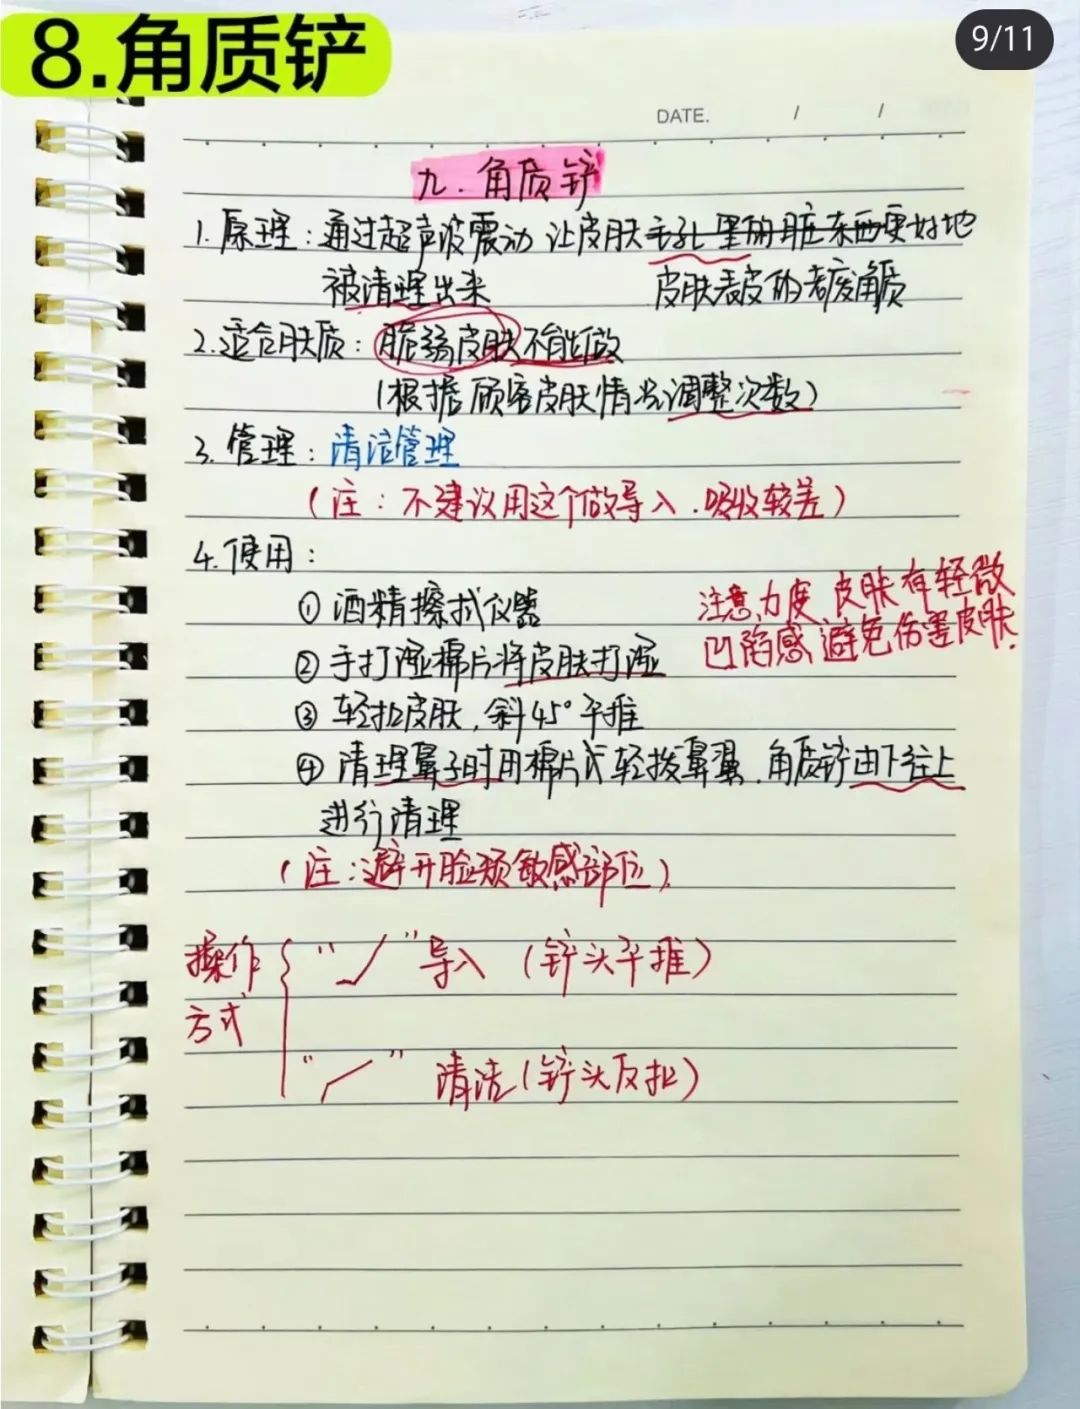 8.角质铲
9/11
DATE. / /
九.角质铲
1.原理:通过超声波震动 让皮肤毛孔里的脏东西更好地
被清理出来 皮肤表皮的老废角质
2.适合肤质:脆弱皮肤不能做
(根据顾客皮肤情况调整次数)
3.管理:清洁管理
(注:不建议用这个做导入.吸收较差)
4.使用:
①酒精擦拭仪器
注意力度、皮肤有轻微
②手打湿棉片将皮肤打湿
凹陷感,避免伤害皮肤.
③轻拉皮肤,斜45°平推
④清理鼻子时用棉片式轻拨鼻翼.角质铲由下往上
进行清理
(注:避开脸颊敏感部位)
操作
方式
“ ” 导入 (铲头平推)
“ ” 清洁(铲头反扣)